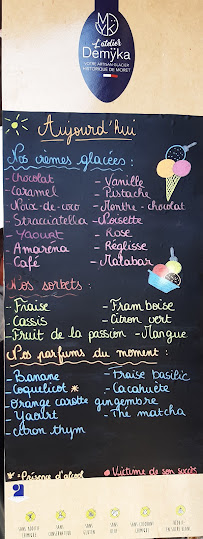 L'atelier
Demÿka
VOTRE ARTISAN GLACIER
HISTORIQUE DE MORET
Aujourd'hui
Nos crèmes glacées :
- Chocolat - Vanille
- Caramel - Pistache
- Noix-de-coco - Menthe-chocolat
- Stracciatella - Noisette
- Yaourt - Rose
- Amarena - Réglisse
- Café - Malabar
Nos sorbets :
- Fraise - Framboise
- Cassis - Citron vert
- Fruit de la passion - Mangue
Nos parfums du moment :
- Banane - Fraise basilic
- Coquelicot * - Cacahuète
- Orange carotte gingembre
- Yaourt - Thé matcha
- Citron thym
* - Présence d'alcool • Victime de son succès
SANS CONSERVATEUR
SANS GLUTEN
SANS OEUF
SANS COLORANT CHIMIQUE